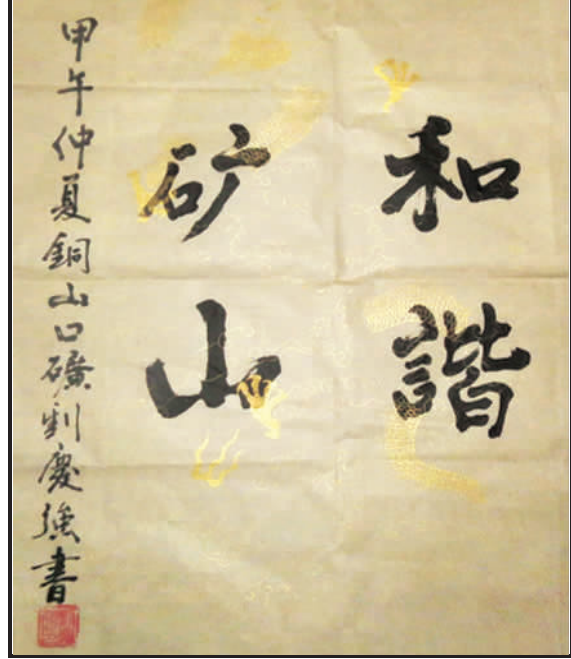 和諧
矿山
甲午仲夏銅山口礦劉慶強書